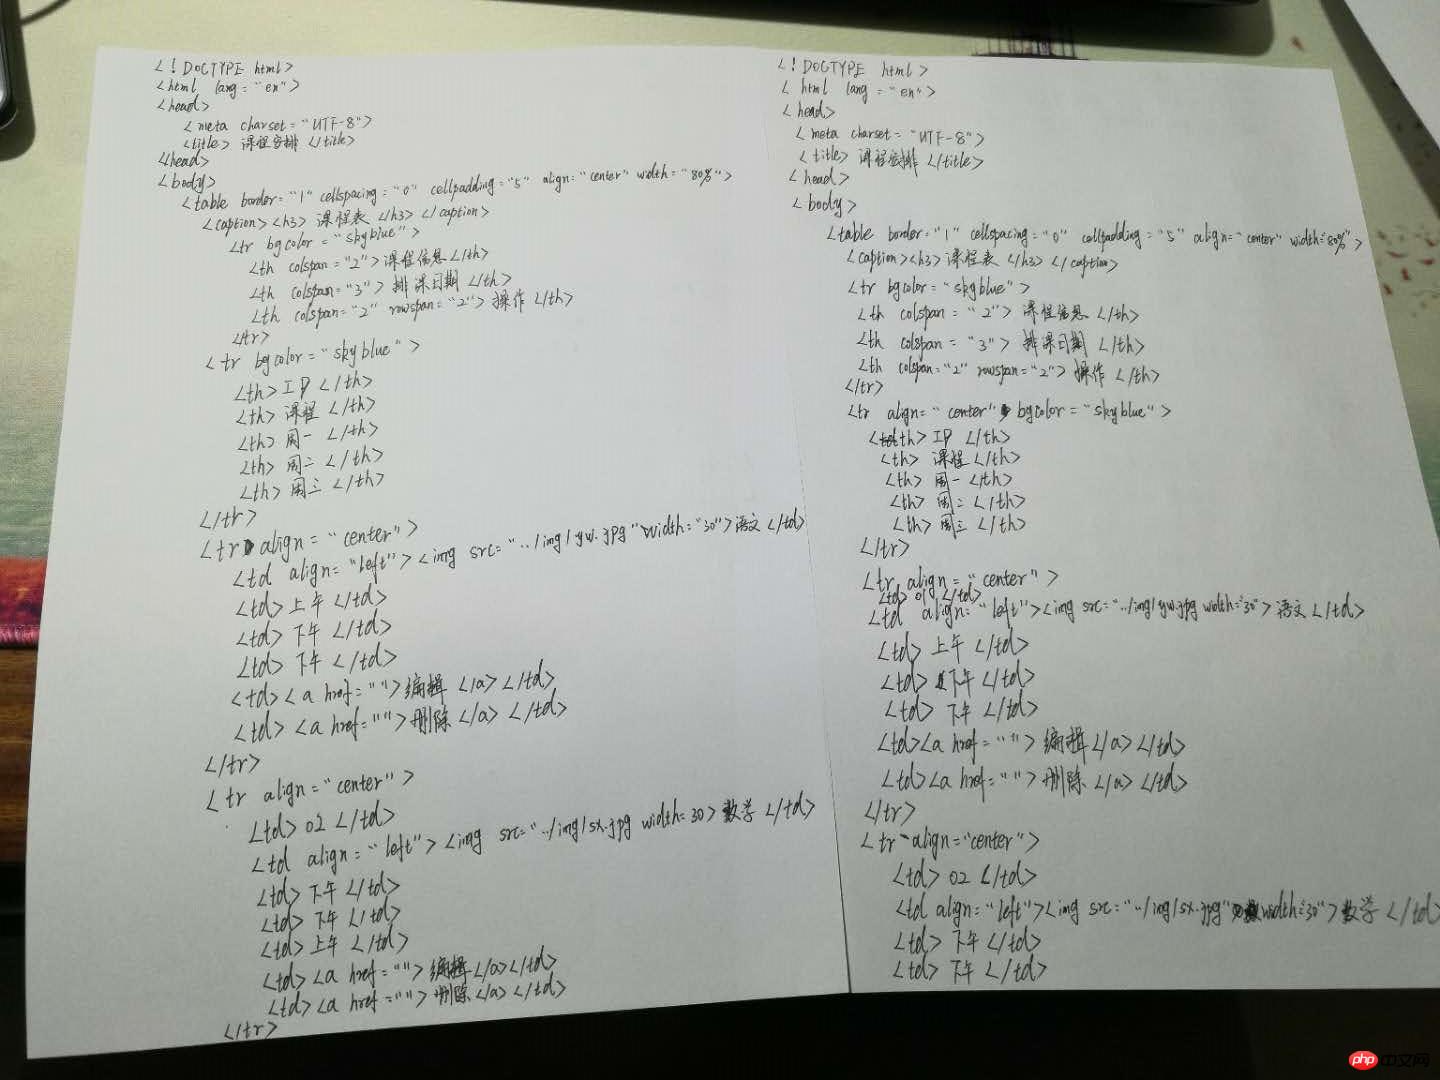 <!DOCTYPE html>
<html lang="en">
<head>
<meta charset="UTF-8">
<title>课程安排</title>
</head>
<body>
<table border="1" cellspacing="0" cellpadding="5" align="center" width="80%">
<caption><h3>课程表</h3></caption>
<tr bgcolor="skyblue">
<th colspan="2">课程信息</th>
<th colspan="3">排课日期</th>
<th colspan="2" rowspan="2">操作</th>
</tr>
<tr bgcolor="skyblue">
<th>IP</th>
<th>课程</th>
<th>周一</th>
<th>周二</th>
<th>周三</th>
</tr>
<tr align="center">
<td align="left"><img src="../img/yw.jpg" width="30">语文</td>
<td>上午</td>
<td>下午</td>
<td>下午</td>
<td><a href="">编辑</a></td>
<td><a href="">删除</a></td>
</tr>
<tr align="center">
<td>02</td>
<td align="left"><img src="../img/sx.jpg width=30>数学</td>
<td>下午</td>
<td>下午</td>
<td>上午</td>
<td><a href="">编辑</a></td>
<td><a href="">删除</a></td>
</tr>
<!DOCTYPE html>
<html lang="en">
<head>
<meta charset="UTF-8">
<title>课程安排</title>
<head>
<body>
<table border="1" cellspacing="0" cellpadding="5" align="center" width="80%">
<caption><h3>课程表</h3></caption>
<tr bgcolor="skyblue">
<th colspan="2">课程信息</th>
<th colspan="3">排课日期</th>
<th colspan="2" rowspan="2">操作</th>
</tr>
<tr align="center" bgcolor="skyblue">
<th>IP</th>
<th>课程</th>
<th>周一</th>
<th>周二</th>
<th>周三</th>
</tr>
<tr align="center">
<td>01</td>
<td align="left"><img src="../img/yw.jpg width="30">语文</td>
<td>上午</td>
<td>下午</td>
<td>下午</td>
<td><a href="">编辑</a></td>
<td><a href="">删除</a></td>
</tr>
<tr align="center">
<td>02</td>
<td align="left"><img src="../img/sx.jpg" width="30">数学</td>
<td>下午</td>
<td>下午</td>
php中文网